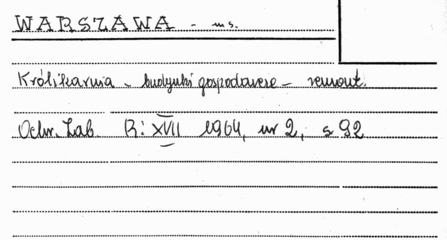 WARSZAWA - m s.
Królikarnia - budynki gospodarcze - remont.
Ochr. Zab. R: XVII 1964, nr 2, s 92